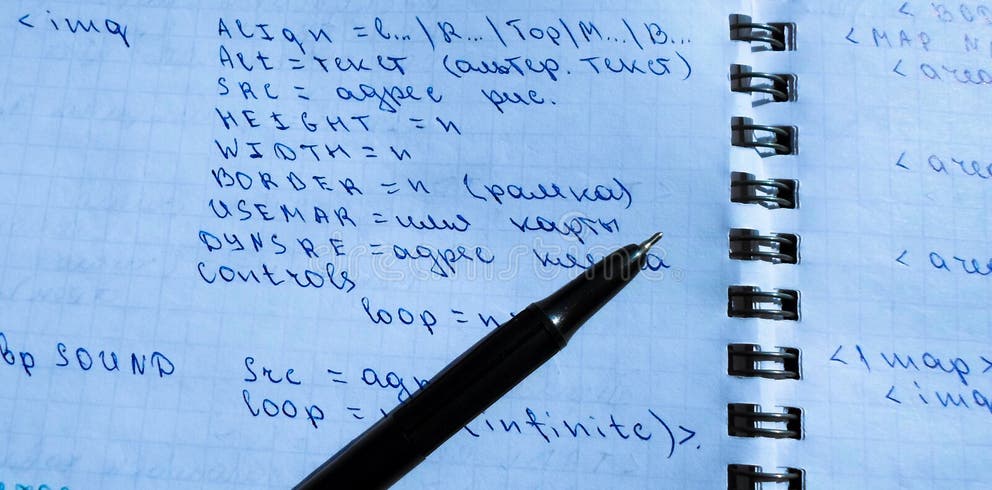 <img ALIGN = l...\R...\Top\M...\B...
Alt = текст (альтер. текст)
SRC = адрес рис.
HEIGHT = n
WIDTH = n
BORDER = n (рамка)
USEMAR = имя карты
DYNSRE = адрес
Controls
loop = n
SOUND Src = адр
loop = (infinite)>.
<MAP
<area
<area
<area
</map>
<img
dreamstime